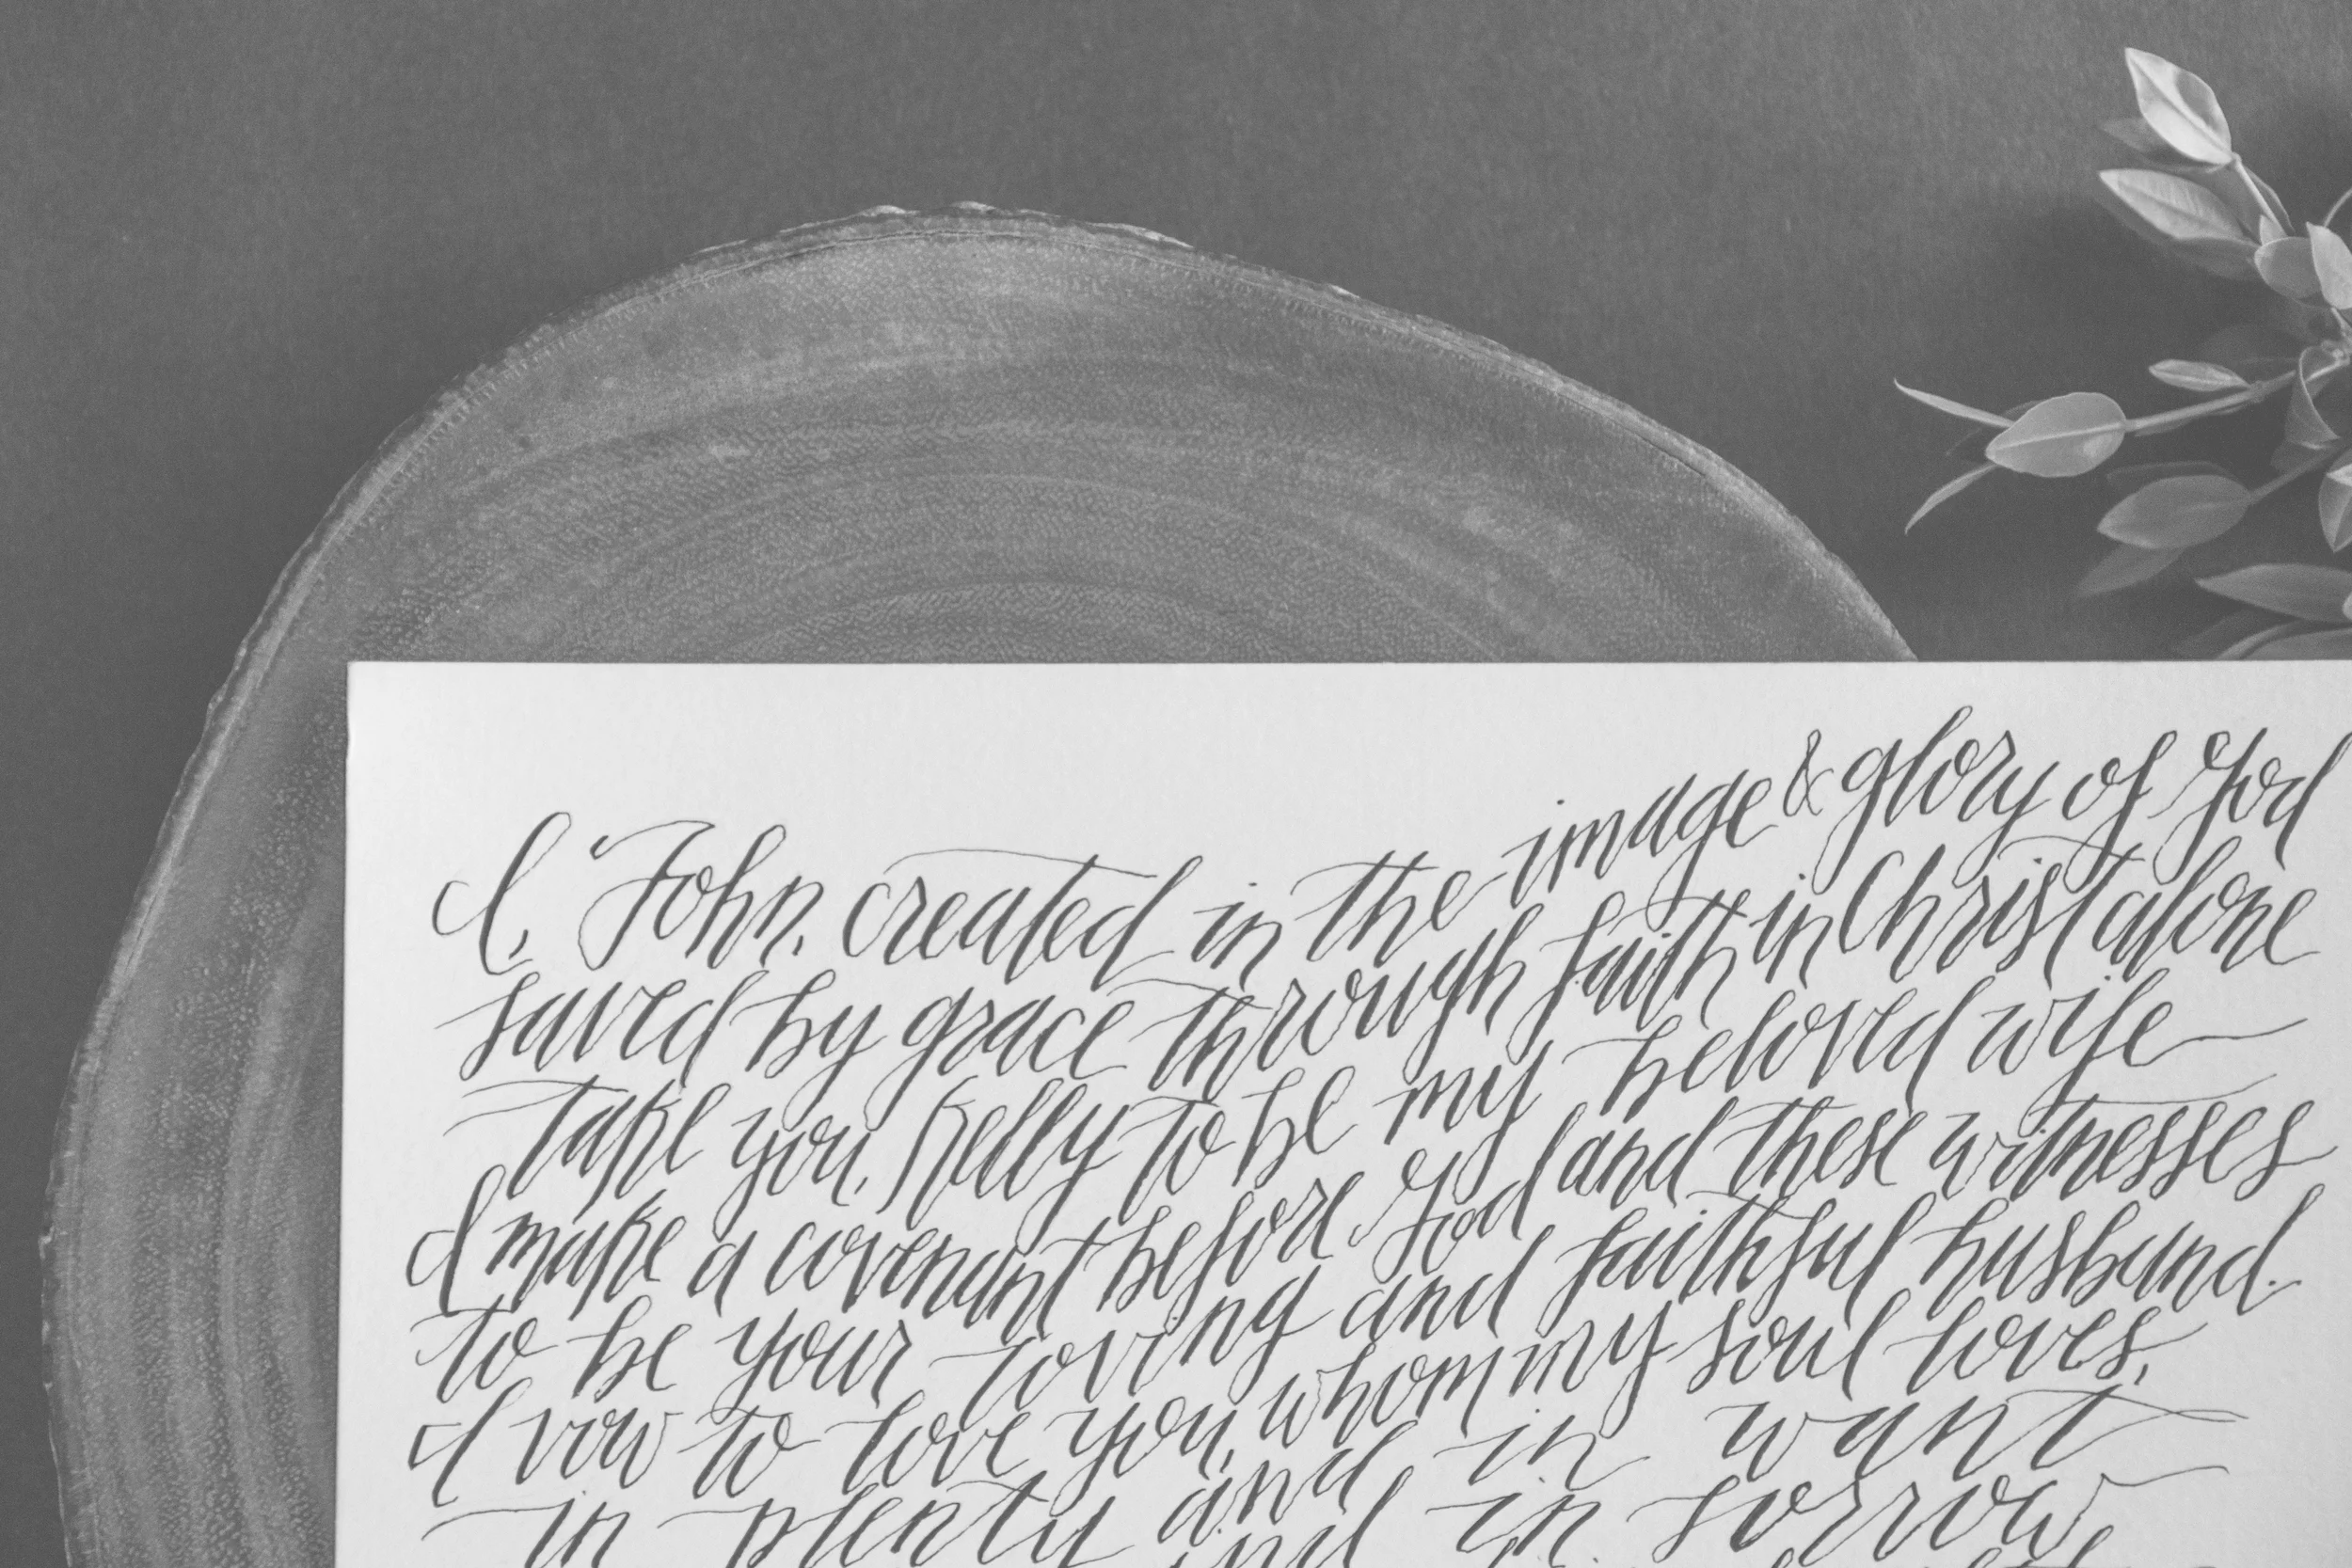 I, John, created in the image & glory of God
saved by grace through faith in Christ alone
take you, Kelly to be my beloved wife
I make a covenant before God and these witnesses
to be your loving and faithful husband.
I vow to love you, whom my soul loves,
in plenty and in want
and in sorrow